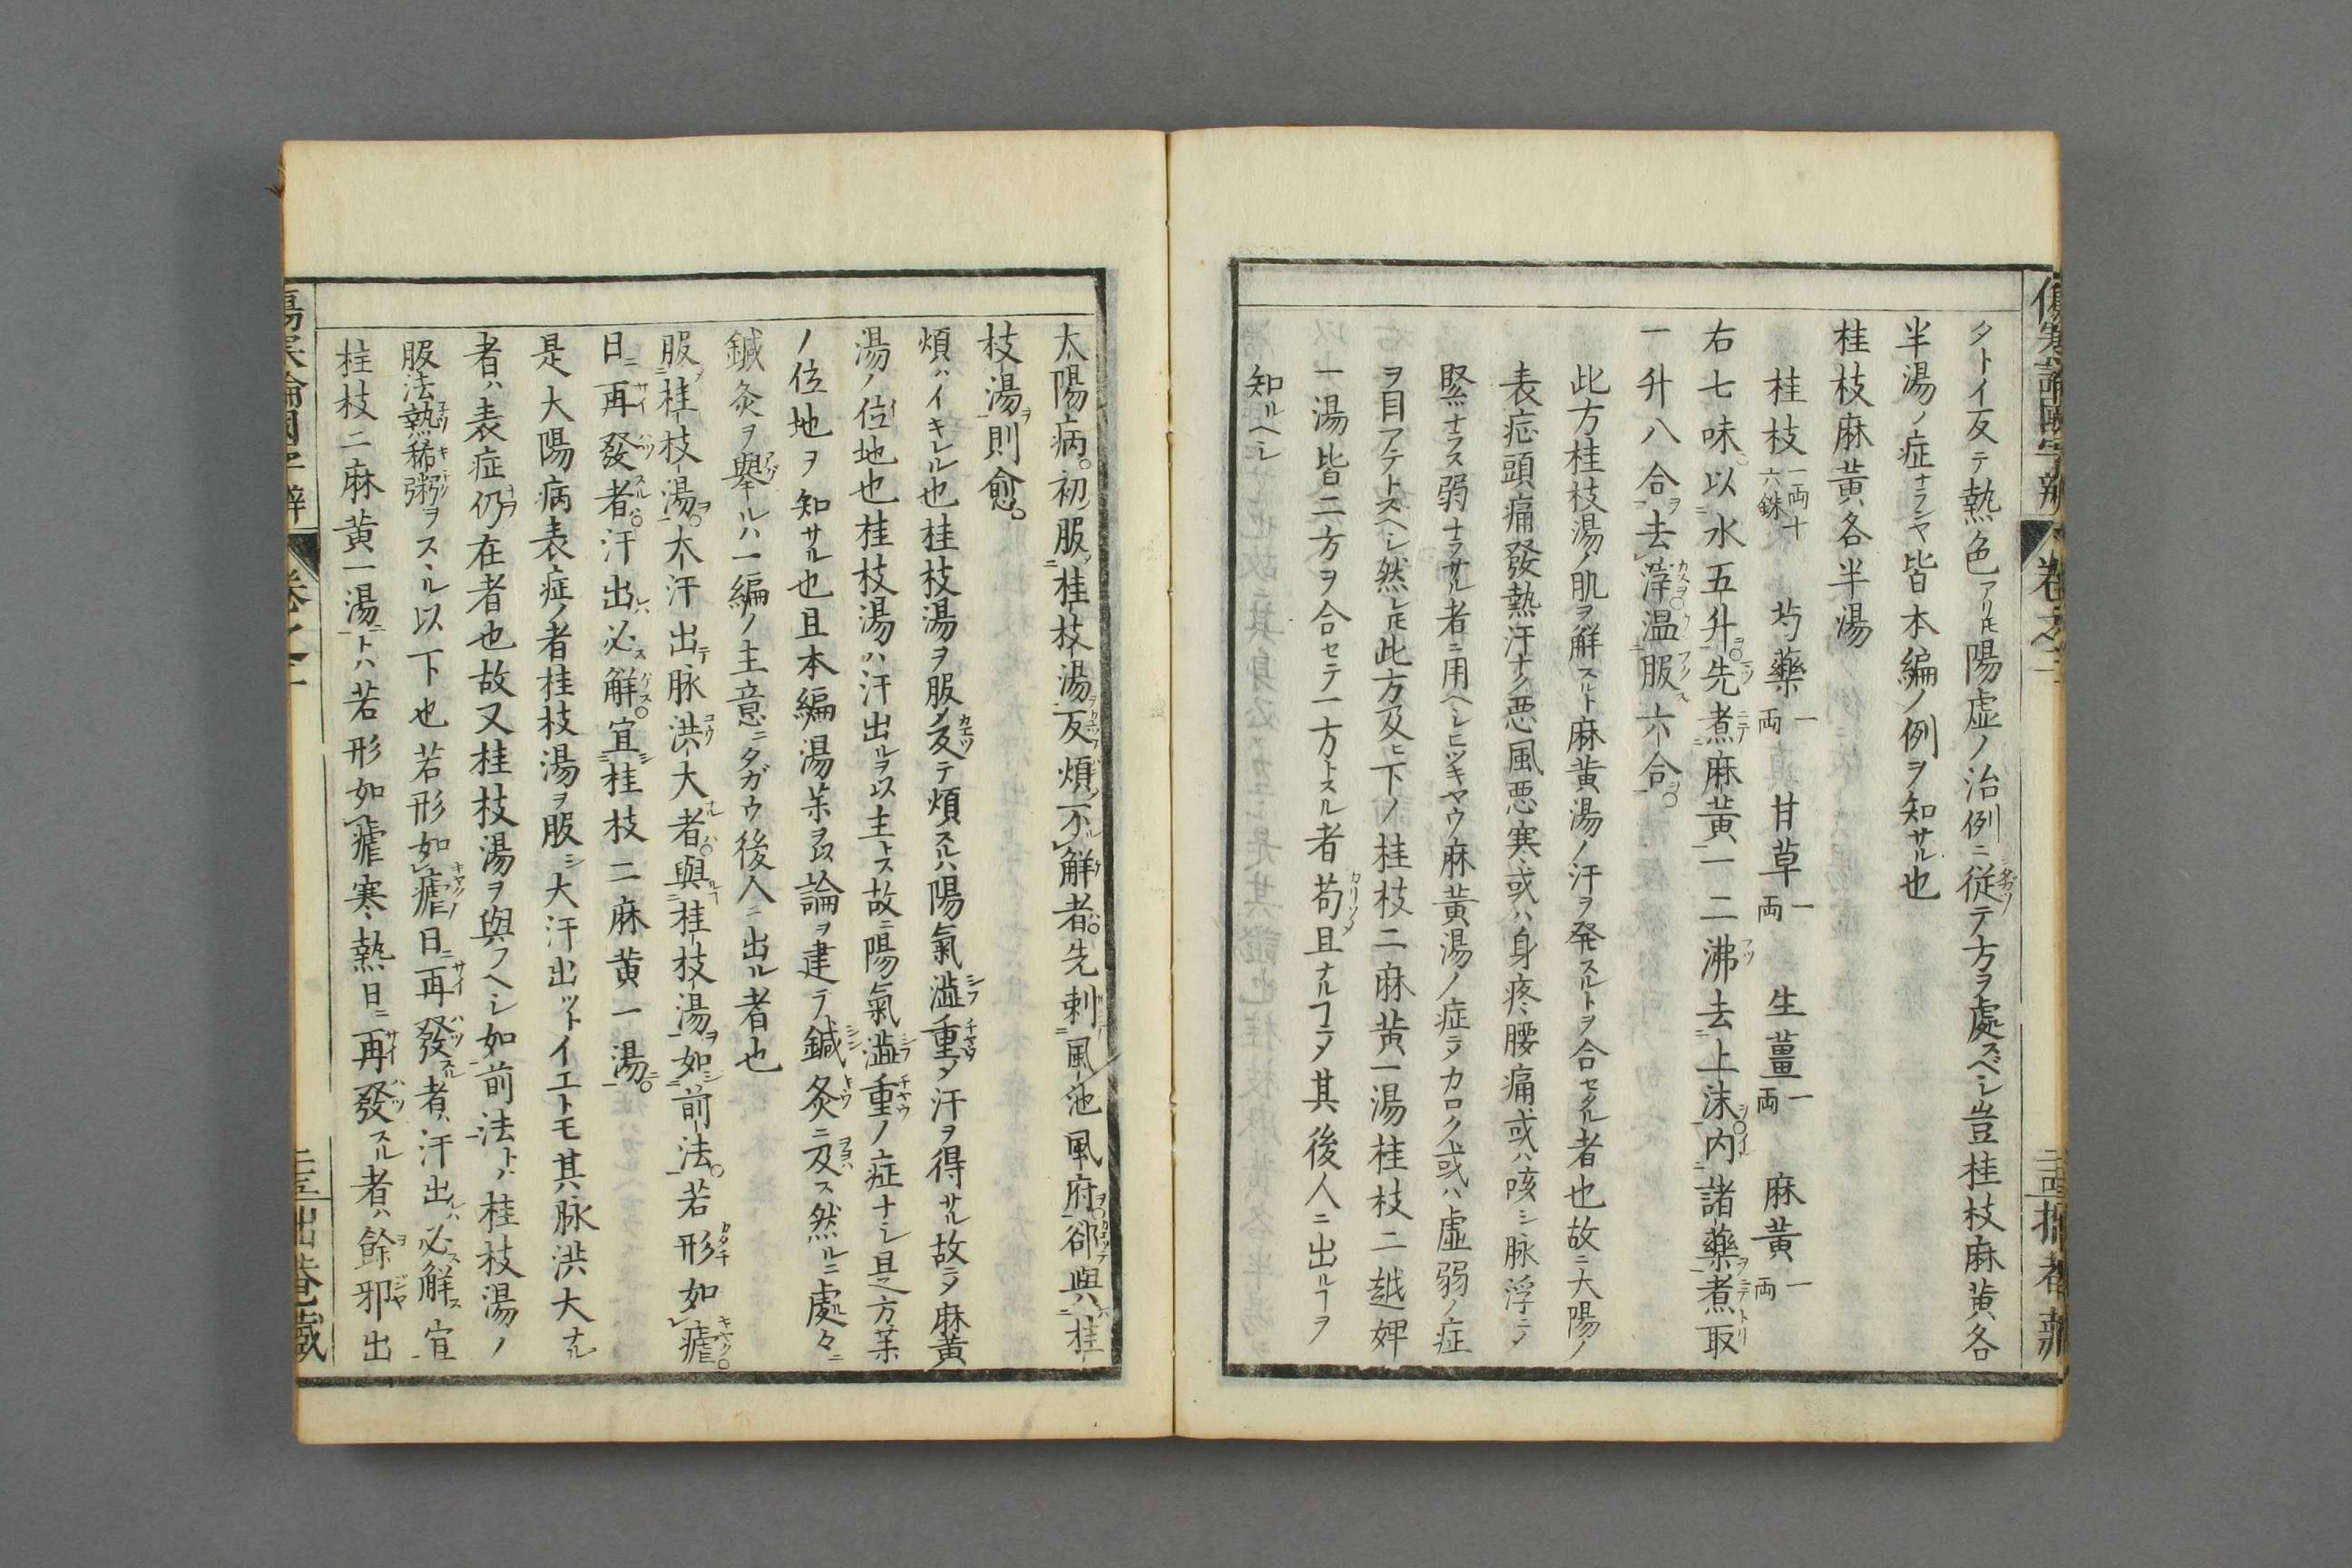 タトイ反テ熱色アリトモ陽虚ノ治例ニ従テ方ヲ處スベシ豈桂枝麻黄各
半湯ノ症ナランヤ皆本編ノ例ヲ知サル也
桂枝麻黄各半湯
桂枝一両十六銖 芍藥一両 甘草一両 生薑一両 麻黄一両
右七味以水五升先煮麻黄一二沸去上沫内諸藥煮取
一升八合去滓温服六合
此方桂枝湯ノ肌ヲ解スルト麻黄湯ノ汗ヲ発スルトヲ合セタル者也故ニ大陽ノ
表症頭痛發熱汗ナク悪風悪寒或ハ身疼腰痛或ハ咳シ脉浮ニシテ
緊ナラス弱ナラサル者ニ用ヘシヒツキヤウ麻黄湯ノ症ヨリカロク或ハ虚弱ノ症
ヲ目アテトスヘシ然レトモ此方及ヒ下ノ桂枝二麻黄一湯桂枝二越婢
一湯皆二方ヲ合セテ一方トスル者苟且ナルコニメ其後人ニ出ルコヲ
知ルヘシ
太陽病初服桂枝湯反煩不解者先刺風池風府郤與桂
枝湯則愈
煩ハイキレル也桂枝湯ヲ服ノ反テ煩スルハ陽氣澁重メ汗ヲ得サル故ニメ麻黄
湯ノ位地也桂枝湯ハ汗出ルヲ以主トス故ニ陽氣澁重ノ症ナシ是方茱
ノ位地ヲ知サル也且本編湯茱ヲ以論ヲ建テ鍼灸ニ及ス然ルニ處々ニ
鍼灸ヲ擧ルハ一編ノ主意ニタガウ後人ニ出ル者也
服桂枝湯不汗出テ脉洪大者與桂枝湯如前法若形如瘧
日再發者汗出必解宜桂枝二麻黄一湯
是大陽病表症ノ者桂枝湯ヲ服シ大汗出ツトイエトモ其脉洪大ナル
者ハ表症仍在者也故又桂枝湯ヲ與フヘシ如前法トハ桂枝湯ノ
服法熱稀粥ヲスヽル以下也若形如瘧日再發者汗出必解宜
桂枝二麻黄一湯トハ若形如瘧寒熱日ニ再發スル者ハ餘邪出